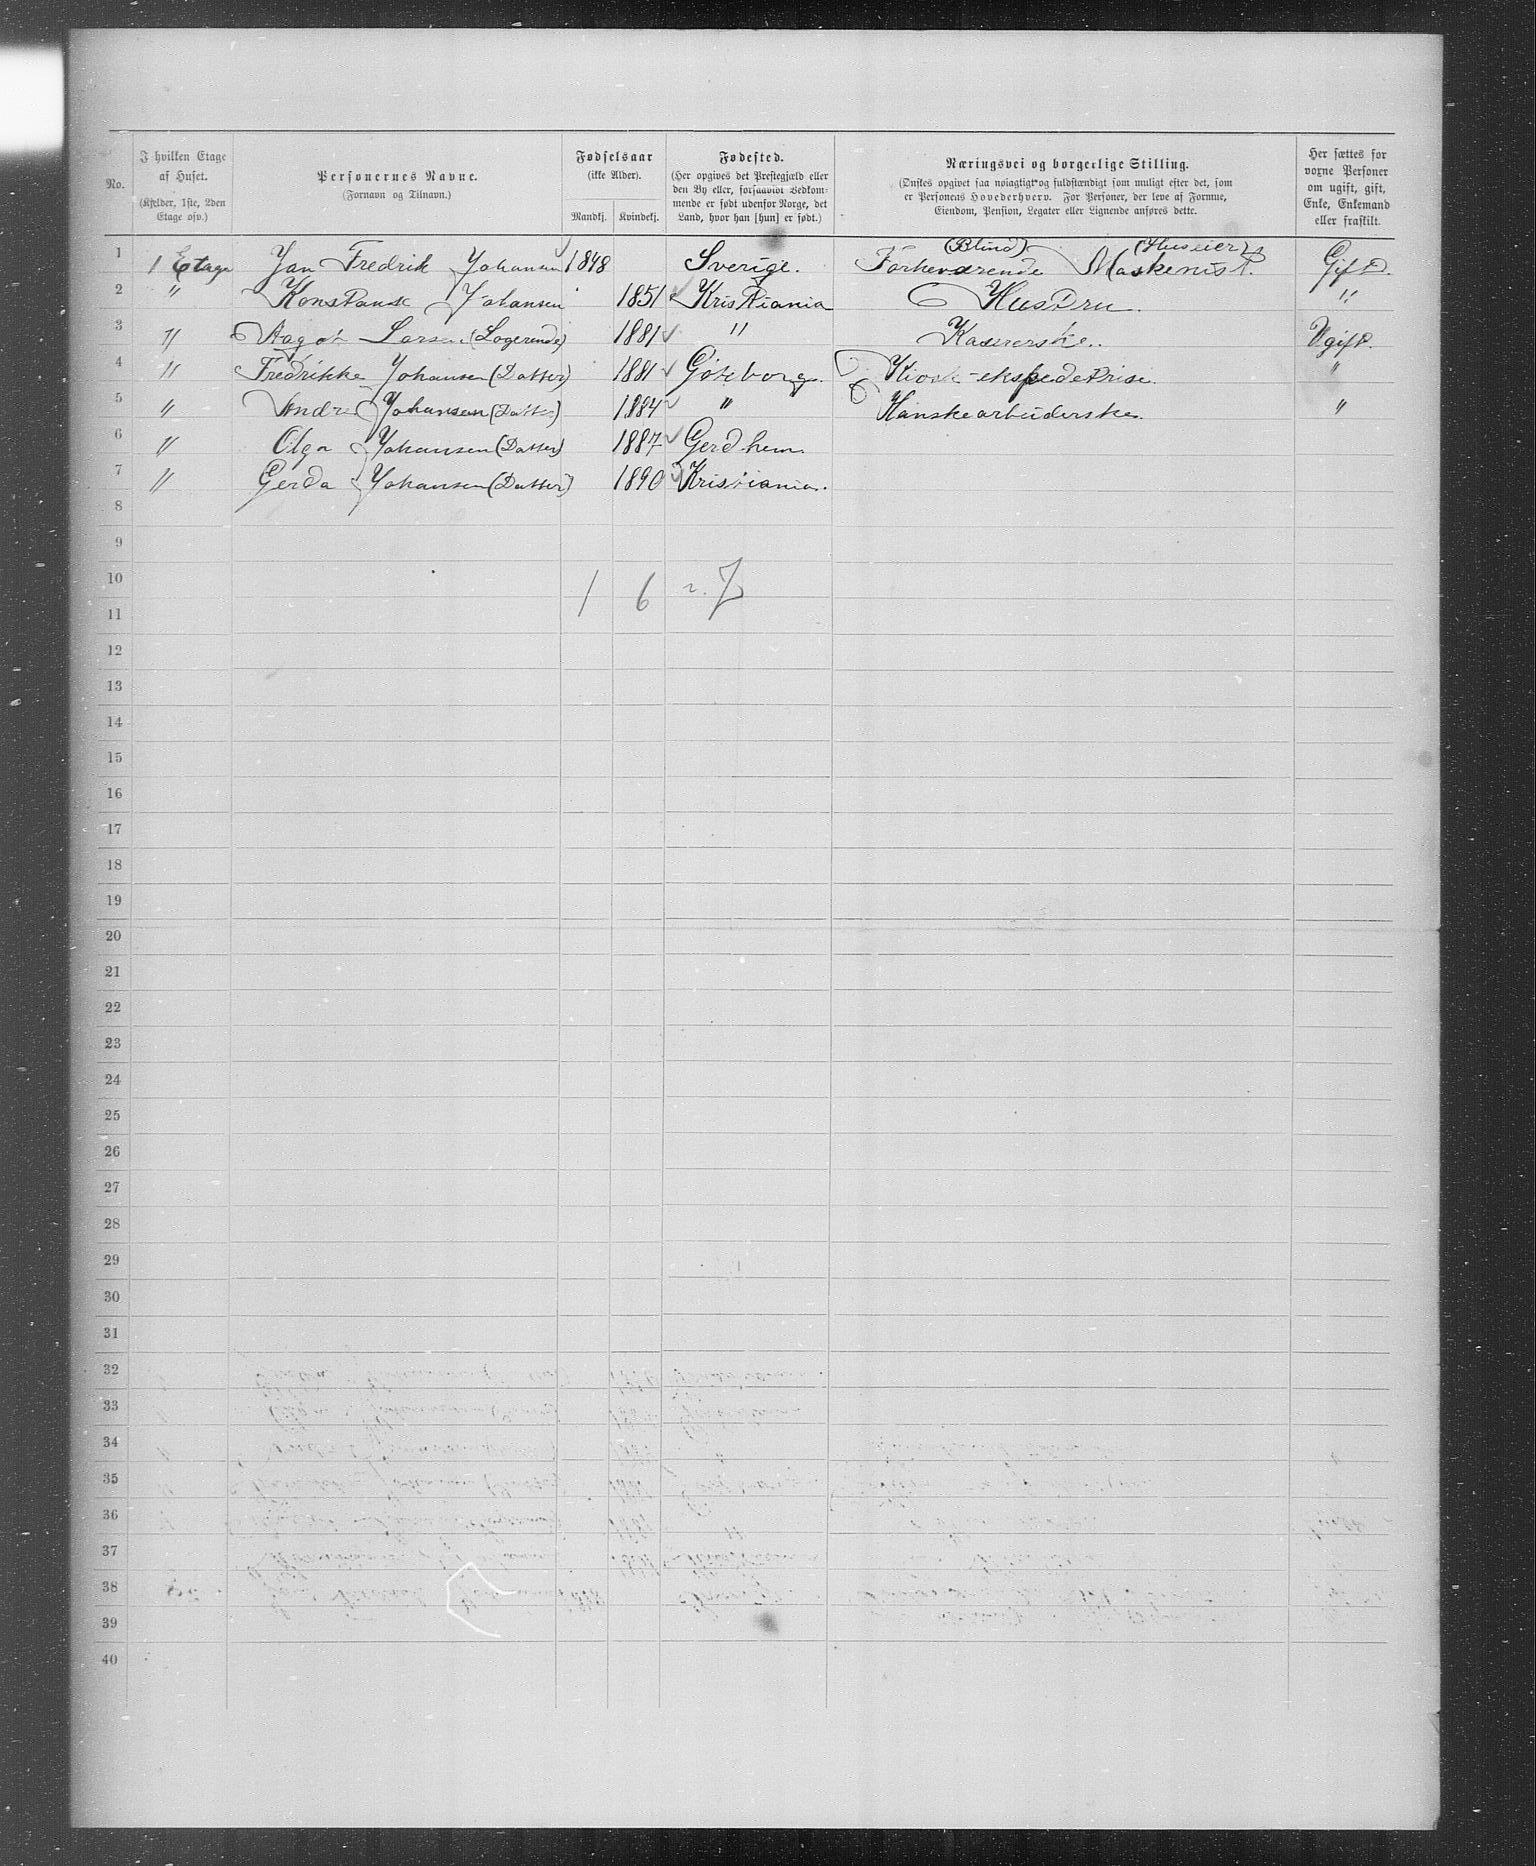 No.
I hvilken Etage af Huset.
(Kjelder, 1ste, 2den Etage osv.)
Personernes Navne.
(Fornavn og Tilnavn.)
Fødselsaar
(ikke Alder).
Mandkj. Kvindekj.
Fødested.
(Her opgives det Prestegjæld eller den By eller, forsaavidt Vedkommende er født udenfor Norge, det Land, hvor han [hun] er født.)
Næringsvei og borgerlige Stilling.
(Ønskes opgivet saa nøiagtigt og fuldstændigt som muligt efter det, som er Personens Hovederhverv. For Personer, der leve af Formue, Eiendom, Pension, Legater eller Lignende anføres dette.
Her sættes for voxne Personer om ugift, gift, Enke, Enkemand eller fraskilt.
(Blind) (Huseier)
1 1 Etage Jan Fredrik Johansen 1848 Sverige. Forheværende Maskenist. Gift.
2 " Konstanse Johansen 1851 Kristiania Hustru. "
3 " Aagot Larsen (Logerende) 1881 " Kasererske. Ugift.
4 " Fredrikke Johansen (Datter) 1881 Göteborg. Kiosk-ekspedetrise. "
5 " Andre Johansen (Datter) 1884 " Hanskearbeiderske. "
6 " Olga Johansen (Datter) 1887 Gerdhem
7 " Gerda Johansen (Datter) 1890 Kristiania.
8
9
10
1 6
11
12
13
14
15
16
17
18
19
20
21
22
23
24
25
26
27
28
29
30
31
32
33
34
35
36
37
38
39
40